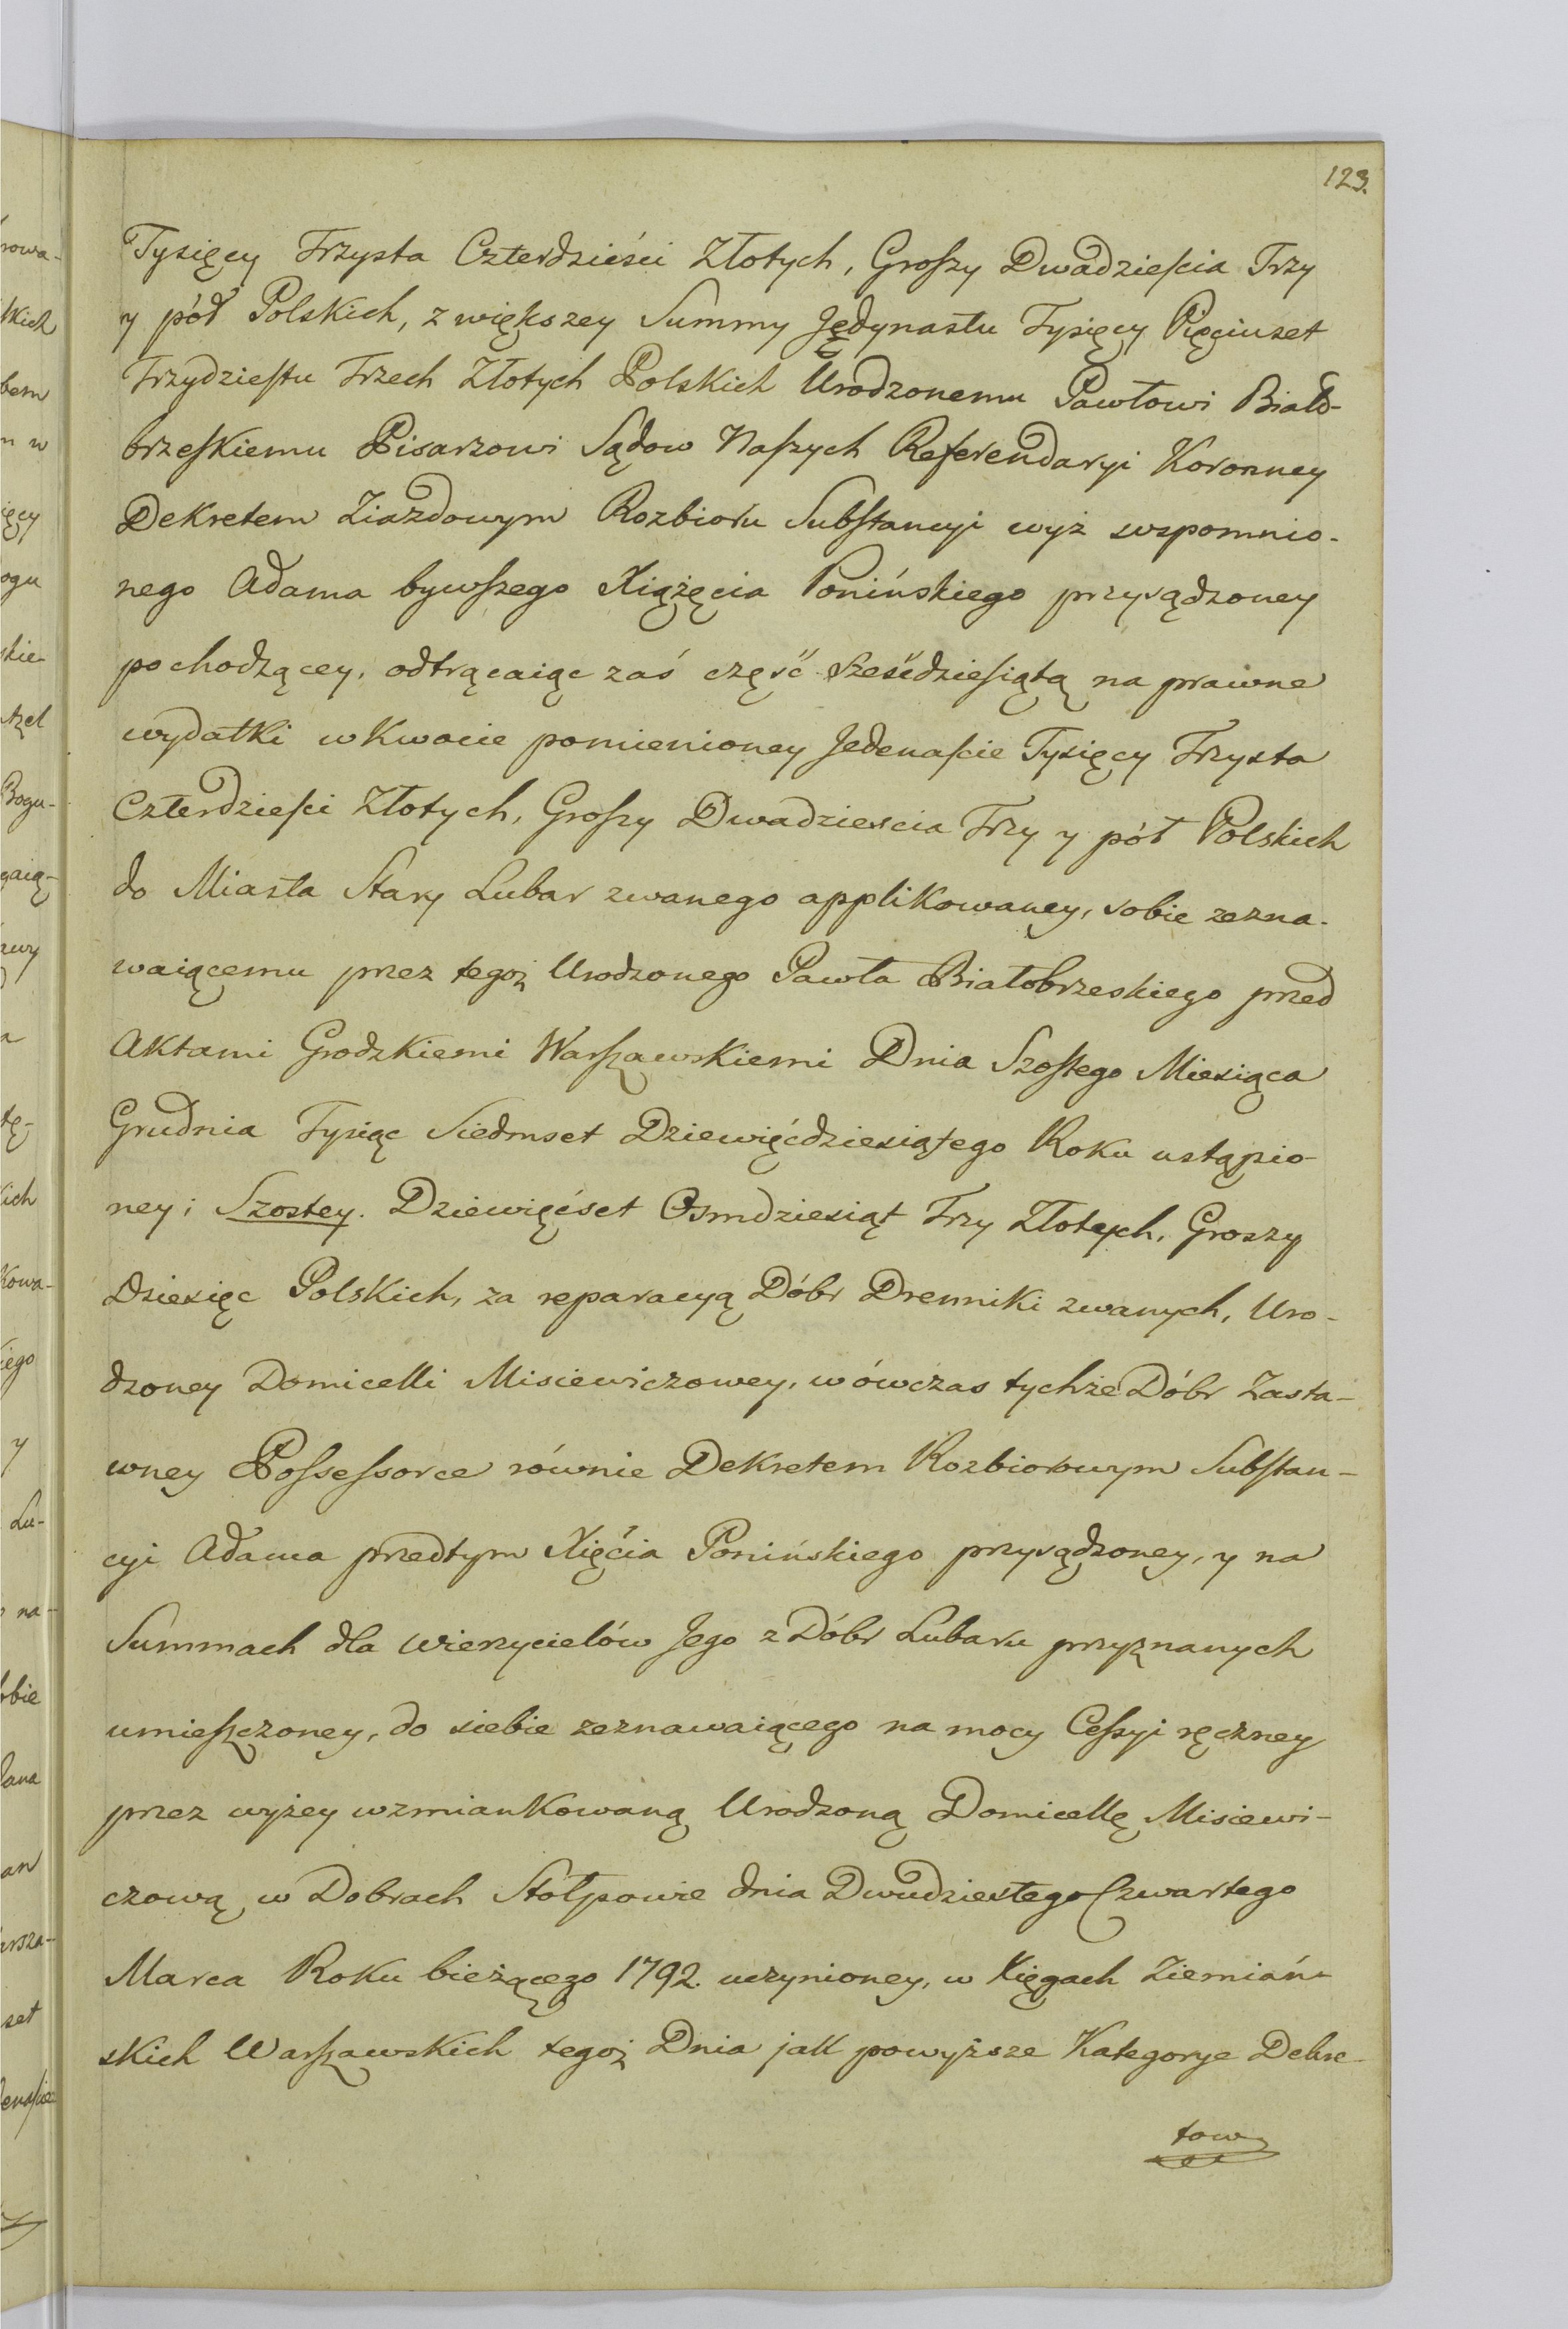 123.
Tysięcy Trzysta Czterdzieści Złotych, Groszy Dwadzieścia Trzy
y pół Polskich, z większey Summy Jędynastu Tysięcy Pięciuset
Trzydziestu Trzech Złotych Polskich Urodzonemu Pawłowi Biało-
brzeskiemu Pisarzowi Sądow Naszych Referendaryi Koronney
Dekretem Ziazdowym Rozbioru Substancyi wyż wspomnio-
nego Adama bywszego Xiążęcia Ponińskiego przysądzoney
pochodzącey, odtrącaiąc zaś część sześćdziesiątą na prawne
wydatki w Kwocie pomienioney Jedenaście Tysięcy Trzysta
Czterdzieści Złotych, Groszy Dwadziescia Trzy y pół Polskich
do Miasta Stary Lubar zwanego applikowaney, sobie zezna-
waiącemu przez tegoż Urodzonego Pawła Białobrzeskiego przed
Aktami Grodzkiemi Warszawskiemi Dnia Szostego Miesiąca
Grudnia Tysiąc Siedmset Dziewięćdziesiątego Roku ustąpio-
ney; Szostey. Dziewięćset Osmdziesiąt Trzy Złotych, Groszy
Dziesięc Polskich, za reparacyą Dóbr Drenniki zwanych, Uro-
dzoney Domicelli Misiewiczowey, wówczas tychże Dóbr Zasta-
wney Possessorce równie Dekretem Rozbiorowym Substan-
cyi Adama przedtym Xięcia Ponińskiego przysądzoney, y na
Summach dla Wierzycielów Jego z Dóbr Lubaru przyznanych
umieszczoney, do siebie zeznawaiącego na mocy Cessyi ręczney
przez wyżey wzmiankowaną Urodzoną Domicellę Misiewi-
czową w Dobrach Stołpowie dnia Dwudziestego Czwartego
Marca Roku bieżącego 1792. uczynioney, w Xięgach Ziemiań-
skich Warszawskich tegoż Dnia jak powyższe Kategorye Dekre-
tow